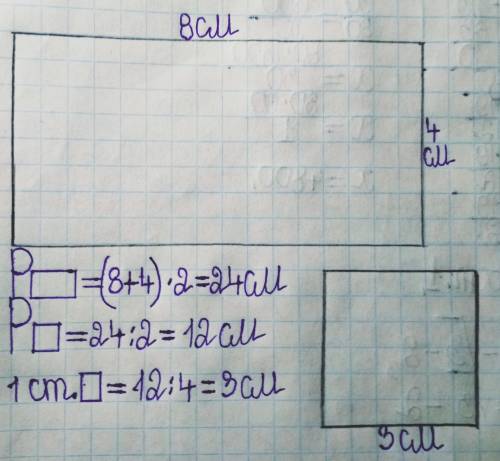 8 см
4
см
P▭=(8+4)·2=24см
P□=24:2=12см
1 ст.□=12:4=3см
3см